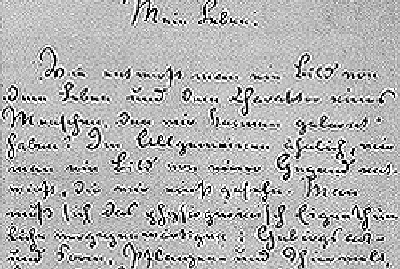 Mein Leben.
Wie entwirft man ein Bild von
dem Leben und dem Charakter eines
Menschen, den wir kennen gelernt
haben? Im Allgemeinen ähnlich, wie
man ein Bild von einer Gegend ent-
wirft, die wir einst gesehn. Man
muß sich das physiognomisch Eigenthüm-
liche vergegenwärtigen: Gebirgsart
und Form, Pflanzen und Thierwelt,